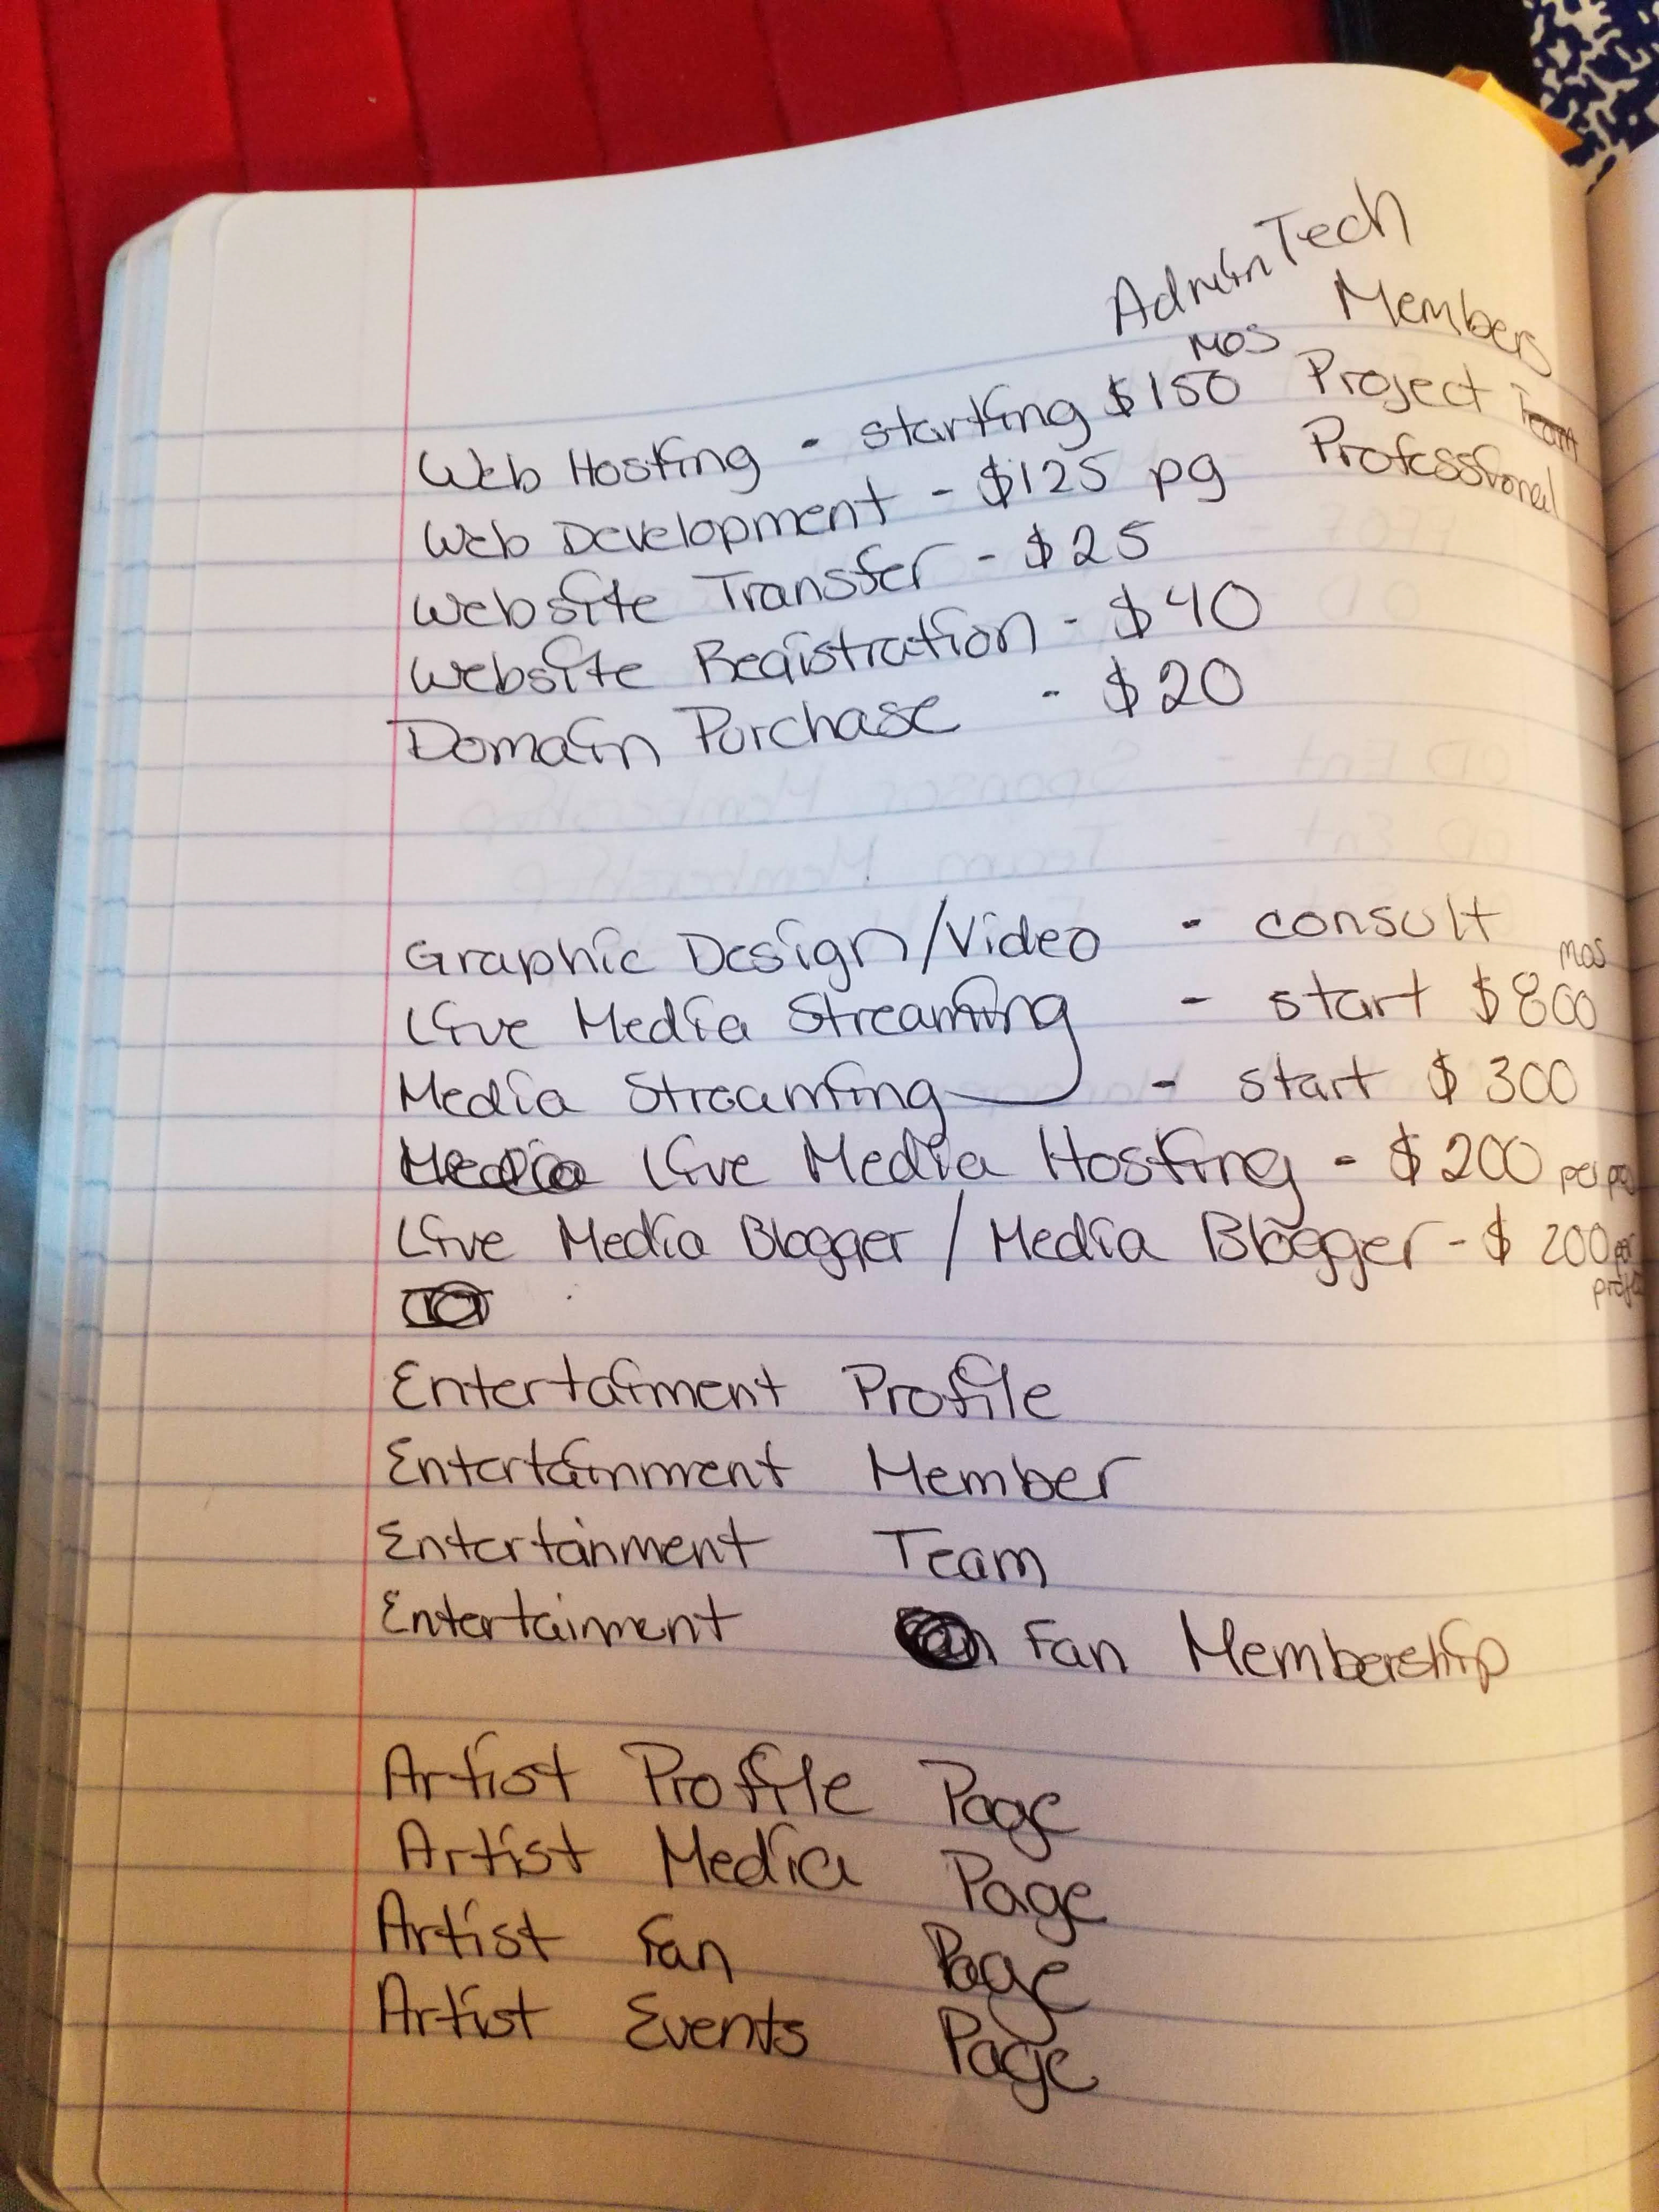 Admin Tech
Members
mos
Web Hosting - starting $150 Project
Web Development - $125 pg Professional
Website Transfer - $25
Website Registration - $40
Domain Purchase - $20
Graphic Design/Video - consult
mos
Live Media Streaming - start $800
Media Streaming - start $300
Live Media Hosting - $200 per
Live Media Blogger / Media Blogger - $200 per
Entertainment Profile
Entertainment Member
Entertainment Team
Entertainment Fan Membership
Artist Profile Page
Artist Media Page
Artist Fan Page
Artist Events Page